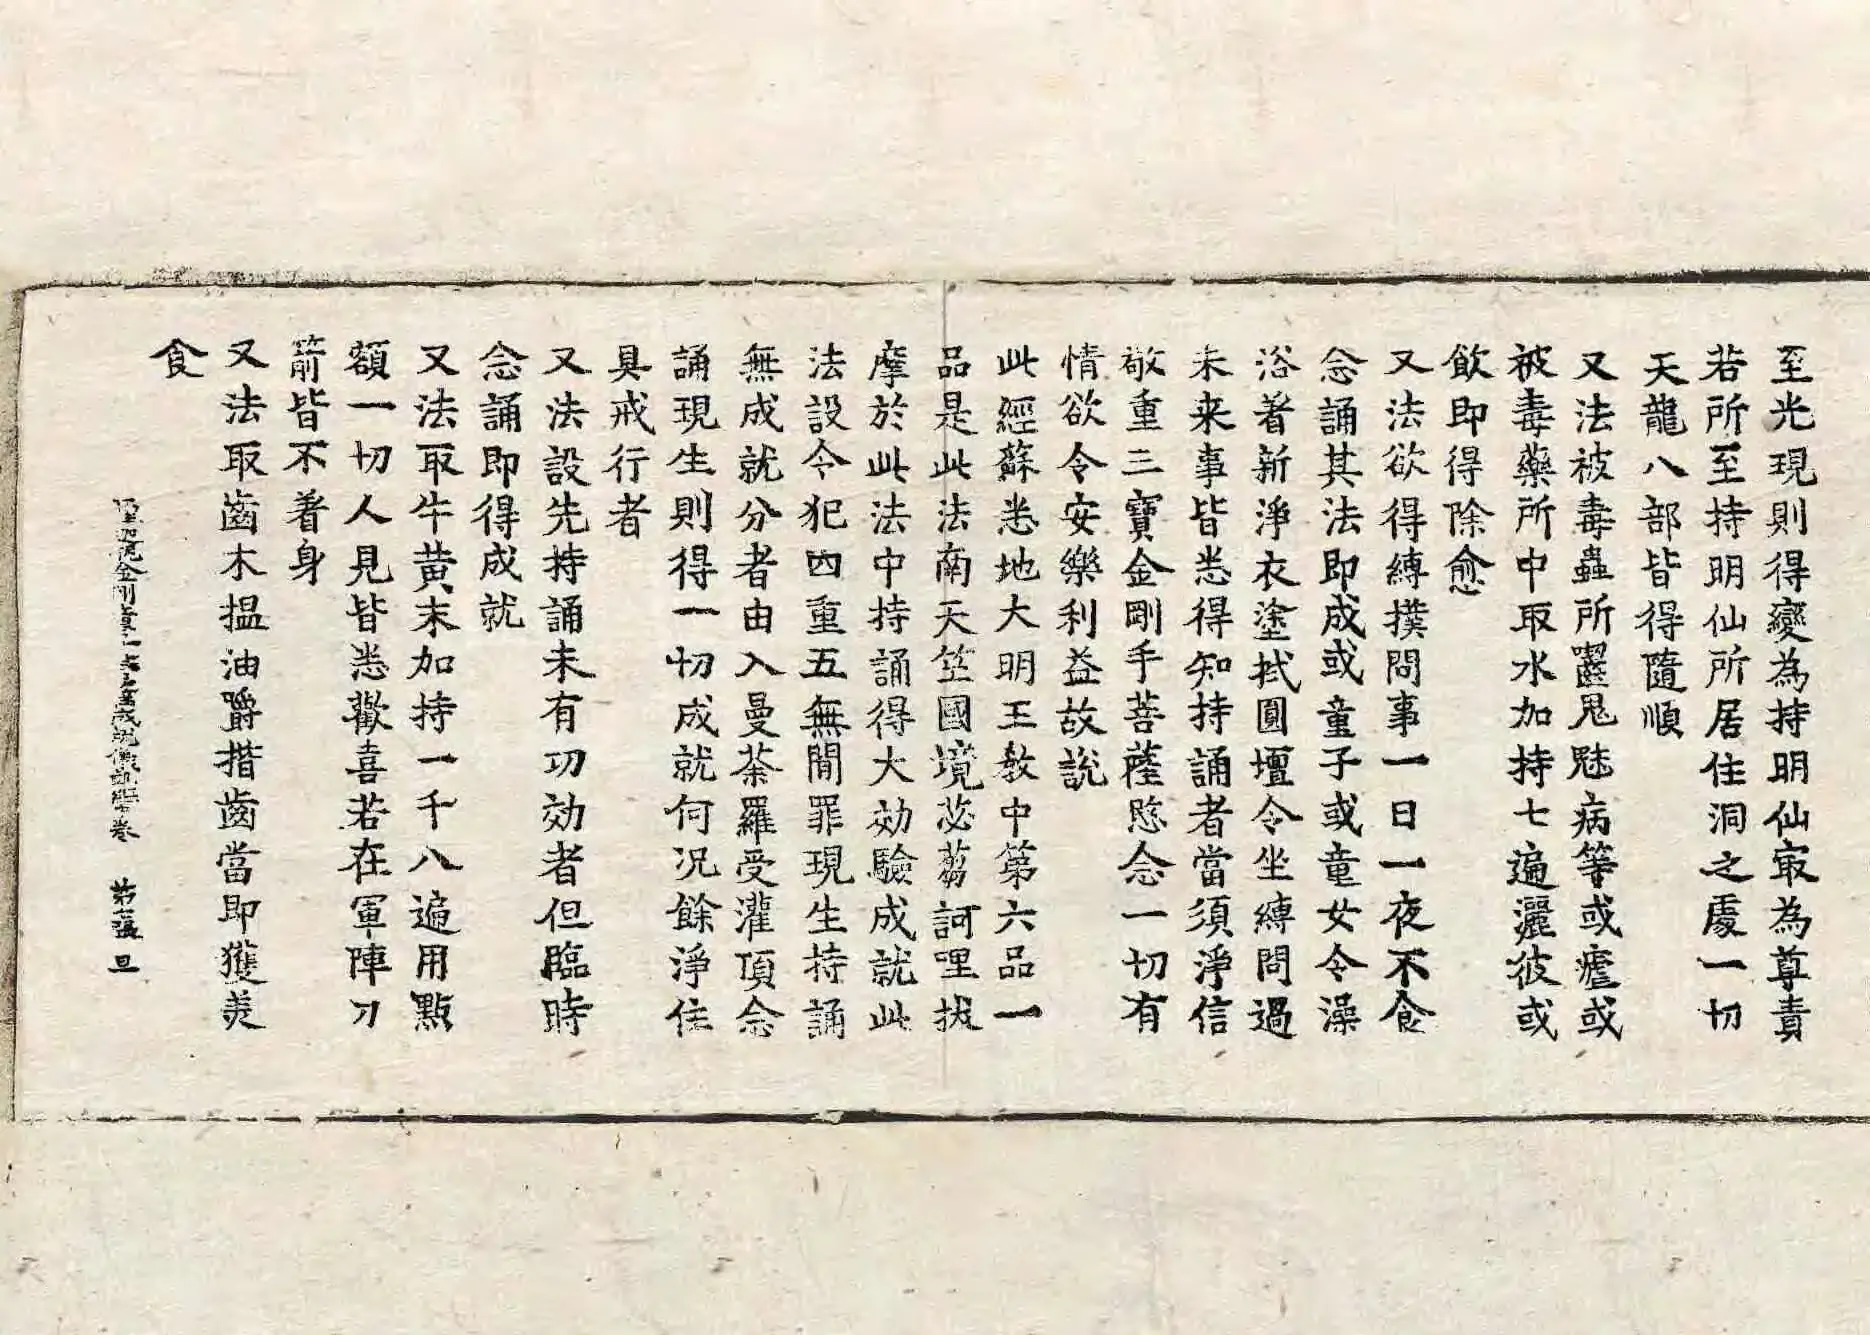 至光現則得變為持明仙㝡為尊貴
若所至持明仙所居住洞之處一切
天龍八部皆得隨順
又法被毒蟲所囓鬼魅病等或瘧或
被毒藥所中取水加持七遍灑彼或
飲即得除愈
又法欲得縛撲問事一日一夜不食
念誦其法即成或童子或童女令澡
浴著新淨衣塗拭圓壇令坐縛問過
未来事皆悉得知持誦者當須淨信
敬重三寶金剛手菩薩愍念一切有
情欲令安樂利益故說
此經蘇悉地大明王教中第六品一
品是此法南天竺國境苾蒭訶哩拔
摩於此法中持誦得大効驗成就此
法設令犯四重五無間罪現生持誦
無成就分者由入曼荼羅受灌頂念
誦現生則得一切成就何况餘淨住
具戒行者
又法設先持誦未有功効者但臨時
念誦即得成就
又法取牛黄末加持一千八遍用點
額一切人見皆悉歡喜若在軍陣刀
箭皆不著身
又法取齒木搵油嚼揩齒當即獲羙
食